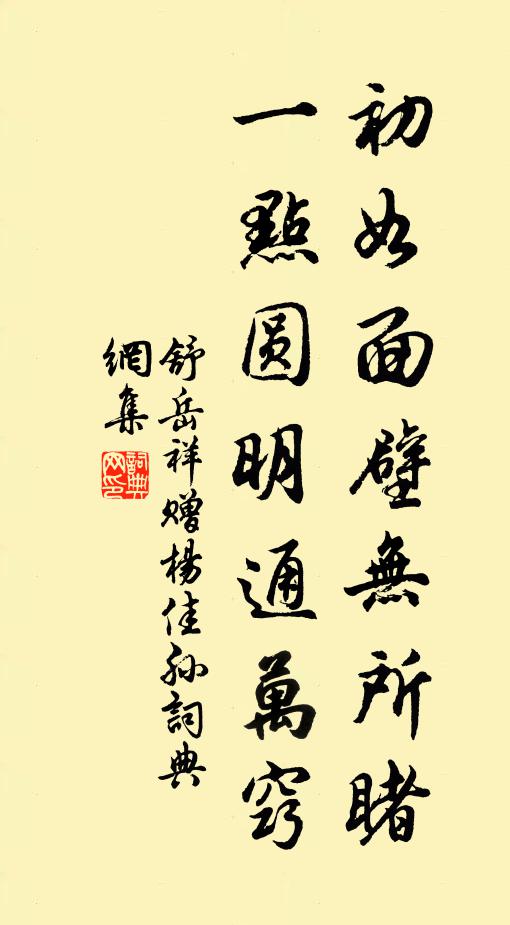 初如面壁無所睹
一點圓明通萬竅
舒岳祥贈楊佳孙詞典
網集
詞典
网印